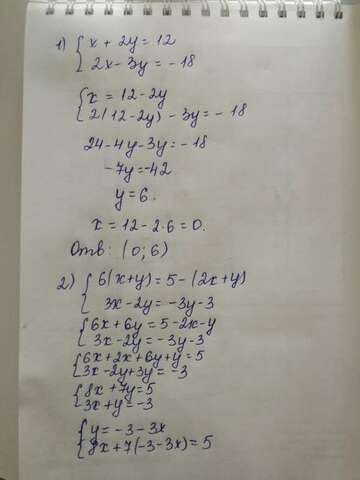 1) { x + 2y = 12
2x - 3y = - 18
{ x = 12 - 2y
2(12 - 2y) - 3y = - 18
24 - 4y - 3y = - 18
-7y = -42
y = 6.
x = 12 - 2·6 = 0.
Отв: (0; 6)
2) { 6(x+y) = 5 - (2x+y)
3x - 2y = -3y - 3
{ 6x + 6y = 5 - 2x - y
3x - 2y = -3y - 3
{ 6x + 2x + 6y + y = 5
3x - 2y + 3y = -3
{ 8x + 7y = 5
3x + y = -3
{ y = -3 - 3x
8x + 7(-3 - 3x) = 5